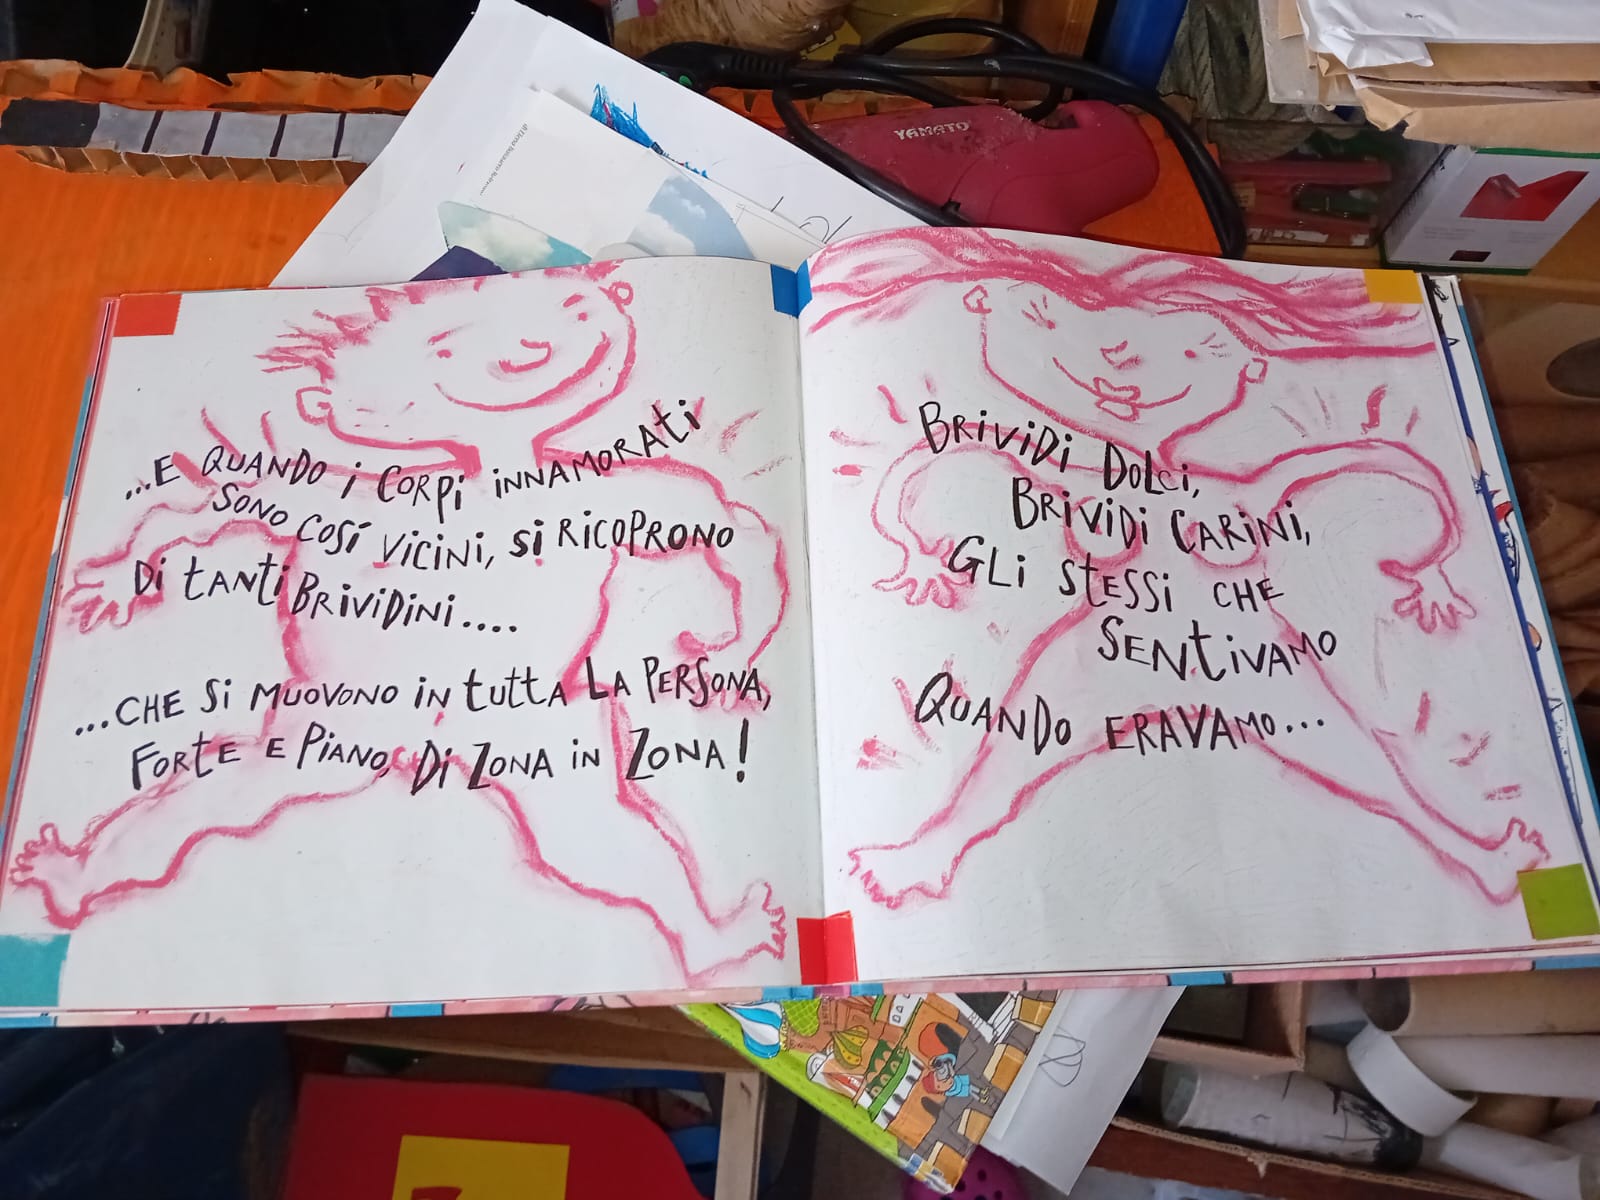 YAMATO
...E QUANDO i CORPi iNNAMORATi
SONO COSÍ ViCiNI, Si RICOPRONO
Di tANti BRIViDiNi....
...CHE Si MUOVONO iN tUttA LA PERSONA,
FORtE E PiANO, Di ZONA iN ZONA!
BRiViDi DOLCi,
BRiViDi CARiNi,
GLi StESSi CHE
SENtiVAMO
QUANDO ERAVAMO...